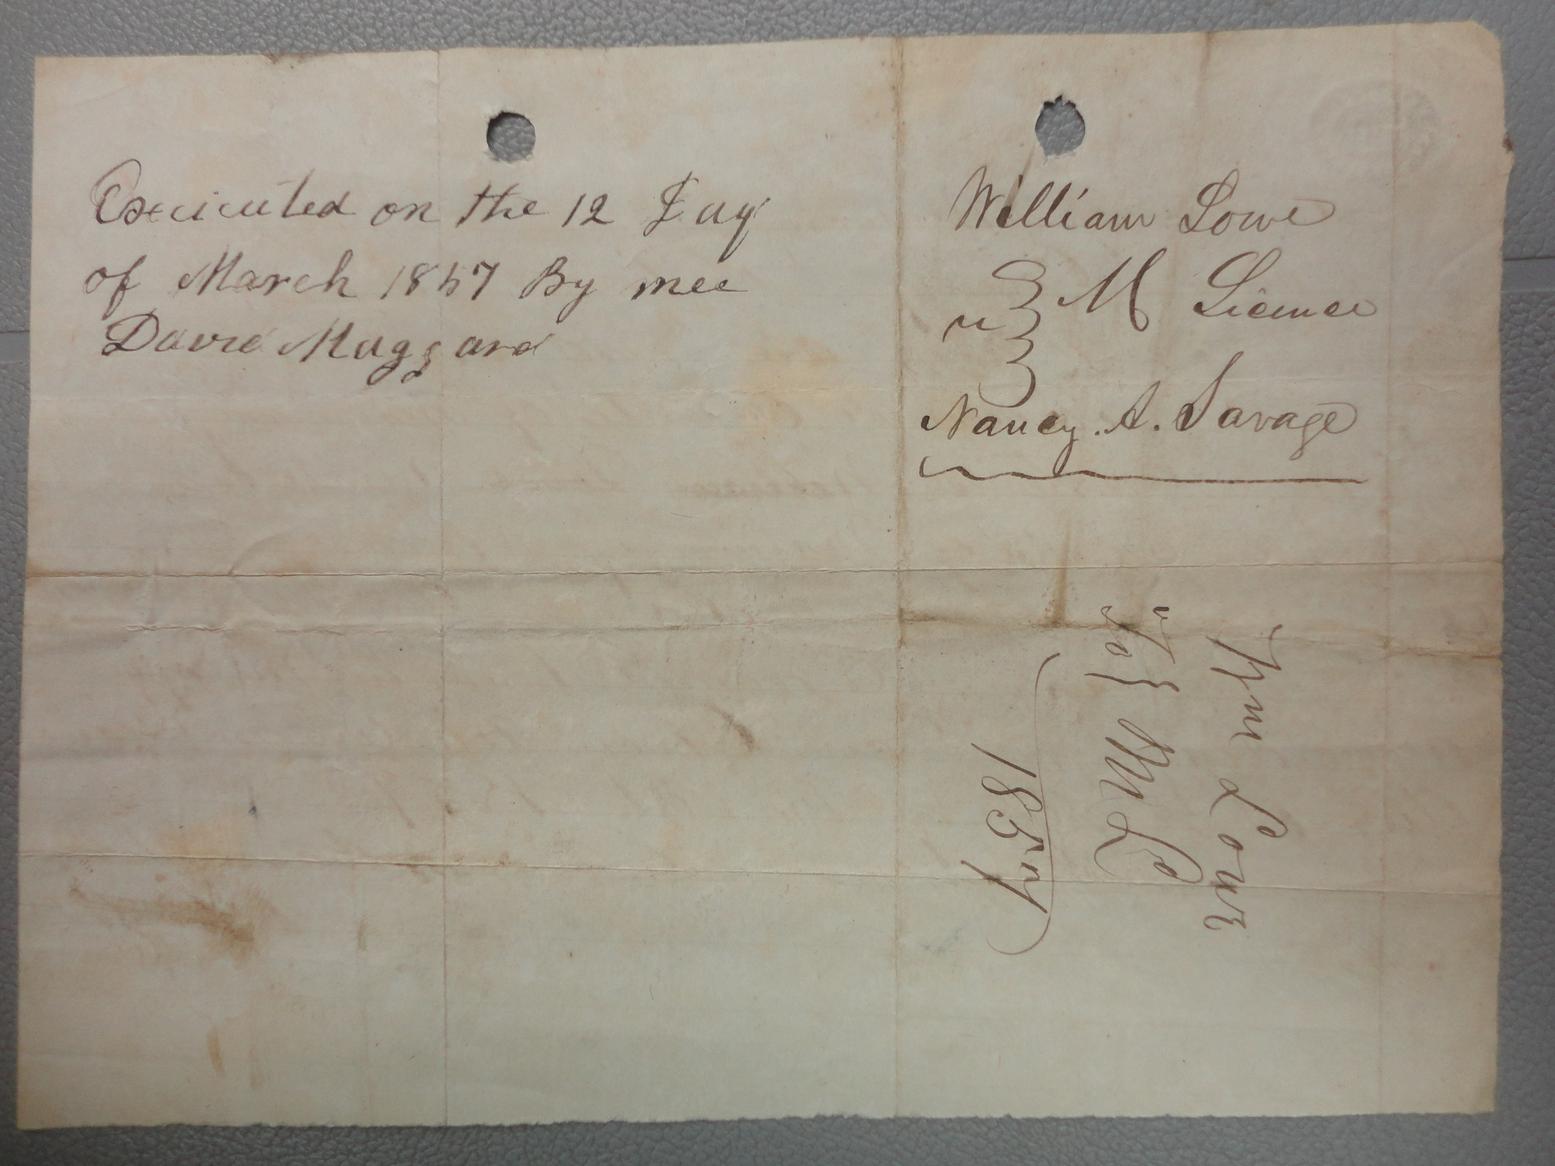 Excicuted on the 12 Day
of March 1857 By mee
David Muggard
William Lowe
vs } M Licence
Nancy. A. Savage
Wm Lowe
To } M Lc
1857